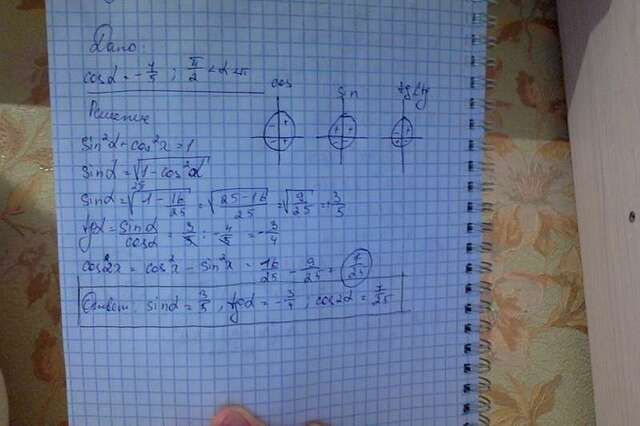 Дано:
cos α = -4/5 ; π/2 < α < π
cos
sin
tg ctg
Решение
sin²α + cos²x = 1
sin α = √(1 - cos²α)
sin α = √(1 - 16/25) = √((25-16)/25) = √(9/25) = 3/5
tg α = sin α / cos α = 3/5 : -4/5 = -3/4
cos2x = cos²x - sin²x = 16/25 - 9/25 = 7/25
Ответ: sin α = 3/5, tg α = -3/4; cos2α = 7/25